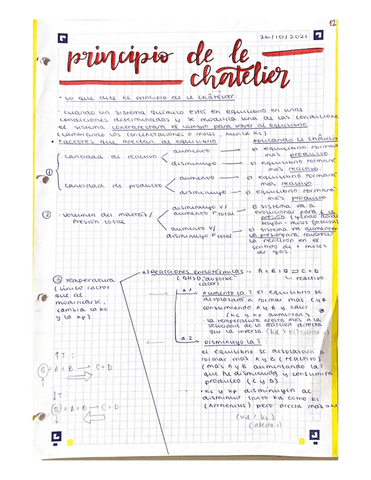 12
26/10/2021
principio de le
chatelier
• Lo que dice el principio de le châtelier
• cuando un sistema químico está en equilibrio en unas
condiciones determinadas y se modifica una de las condiciones
el sistema contrarrestará el cambio para volver al equilibrio
(cambiando las concentraciones o moles, nunca kc)
• Factores que afectan al equilibrio
① cantidad de reactivo
aumento → el equilibrio formará
más producto
disminuyo → el equilibrio formará
más reactivo
cantidad de producto
aumento → el equilibrio formará
más reactivo
disminuyo → el equilibrio formará
más producto
② volumen del matraz/
Presión total
disminuyo V/
aumento P total
el sistema va a
evolucionar para
aumento V/
disminuyo P total
el sistema va a aumentar
la presión
la reacción en el
sentido de + moles
de gas.
③ Temperatura
(único factor
que al
modificarse,
cambia la kc
y la kp)
a) Reacciones endotérmicas → A + B + Q ⇌ C + D
(ΔH>0, absorbe
calor)
a.1 Aumento la T el equilibrio se
desplazará a formar más C y D
consumiendo A y B y calor
(kc y kp aumentan)
la temperatura afecta más a la
velocidad de la reacción directa
que la inversa
a.2 Disminuyo la T
el equilibrio se desplazará a
formar más A y B (reactivo)
que he disminuido y consumirá
producto (C y D)
• kc y kp disminuyen al
disminuir tanto kd como ki
(Arrhenius) pero afecta más a
(kd > ki)
↑T:
Q + A + B C + D
↓T:
Q + A + B C + D